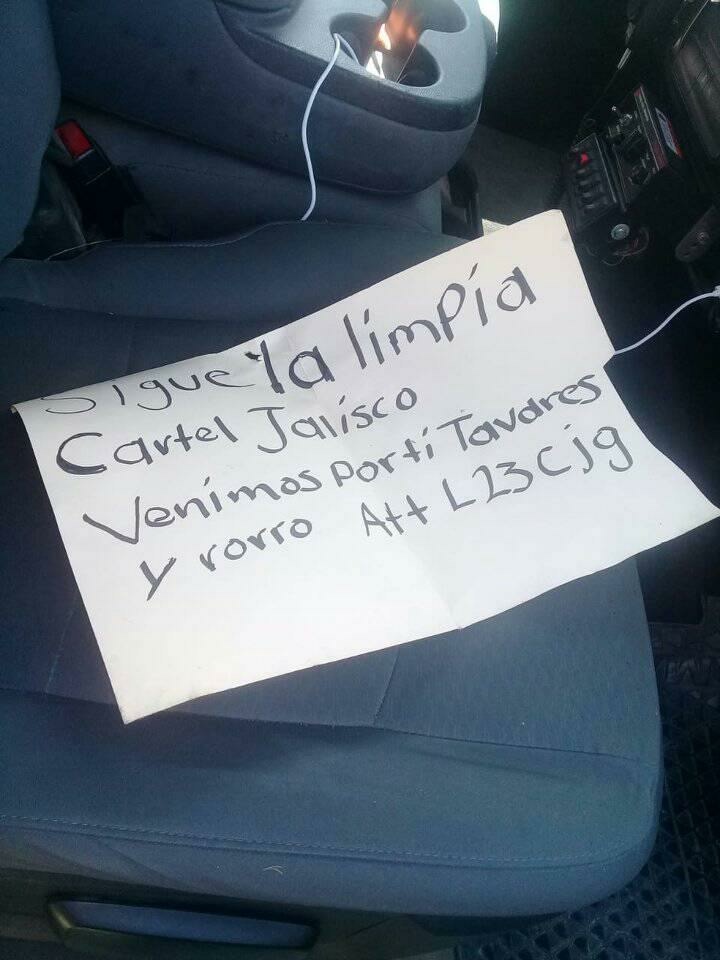 Sigue la limpia
Cartel Jalisco
Venimos por ti Tavares
y rorro Att L23 Cjg